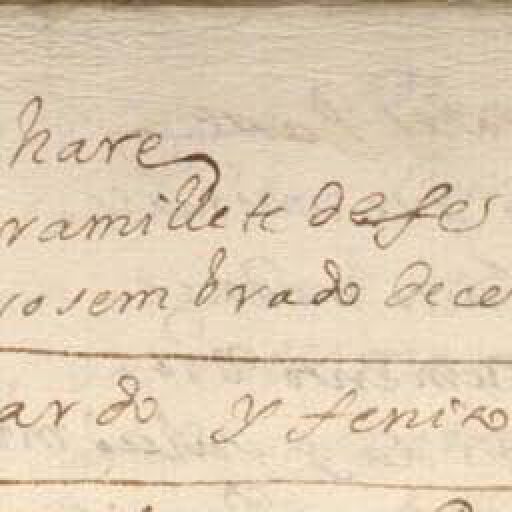 hare
ramillete de fe
rosembrado dece
ardo y feniso